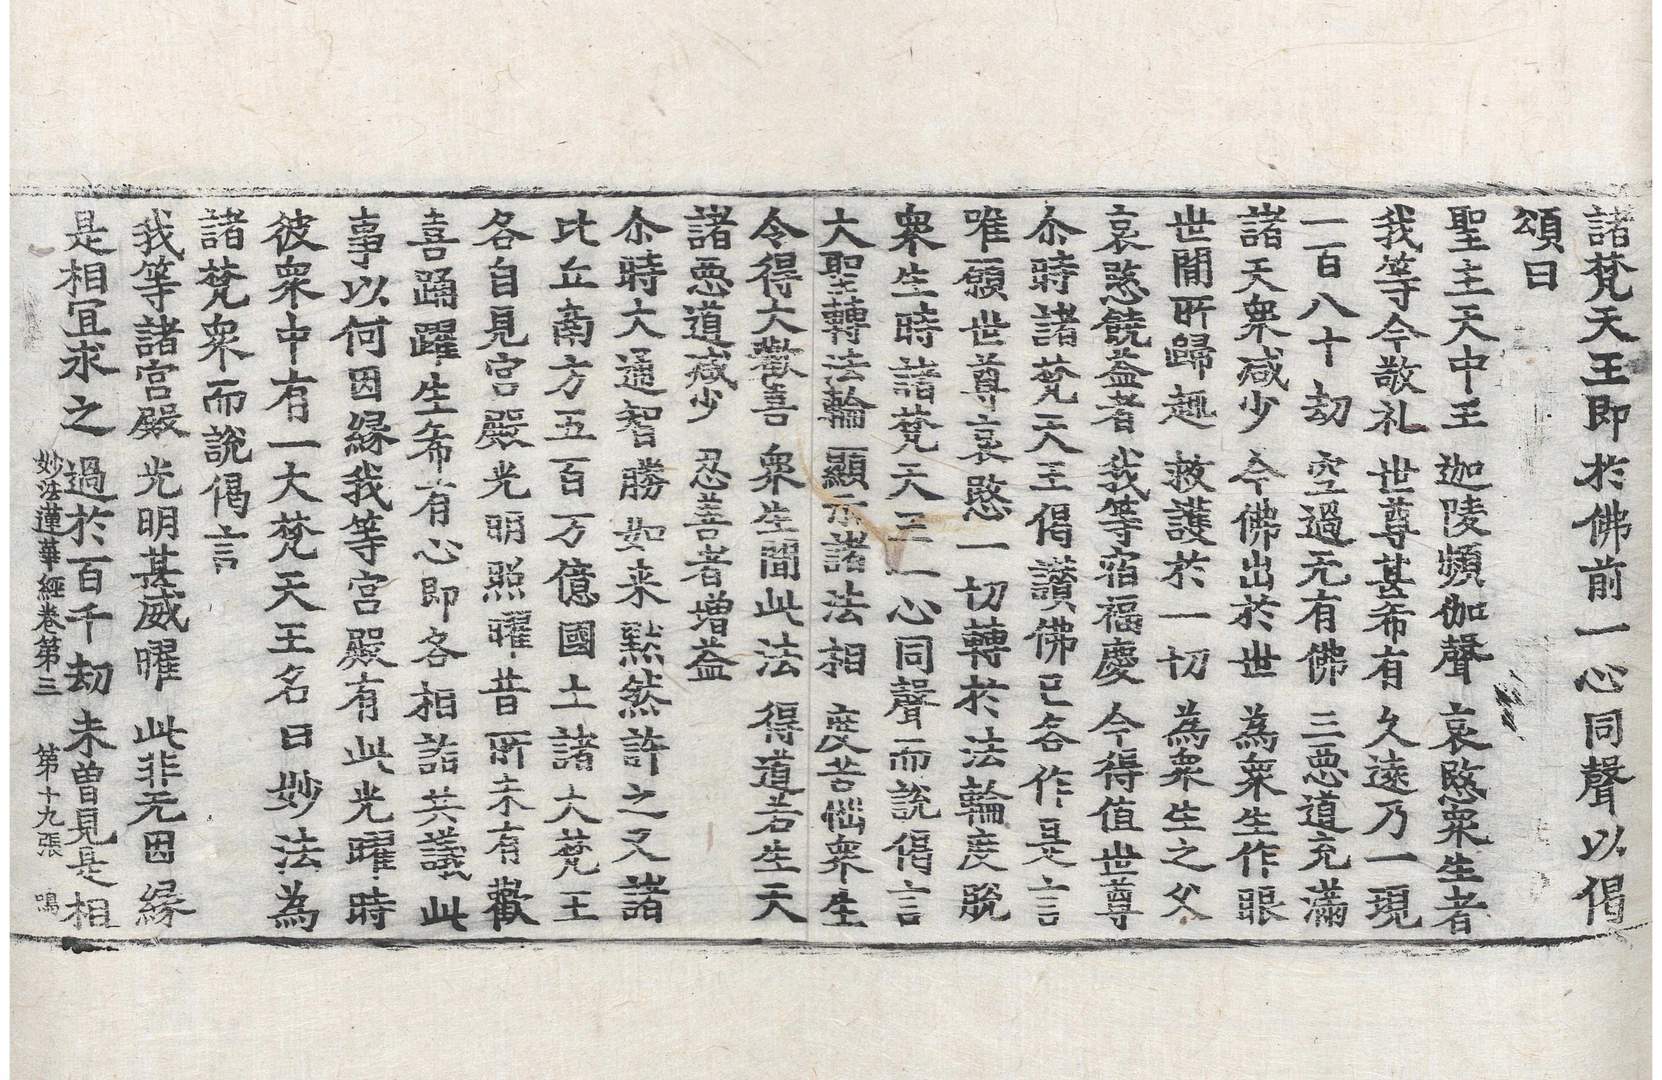 諸梵天王即於佛前一心同聲以偈
頌曰
聖主天中王　迦陵頻伽聲　哀愍衆生者
我等今敬礼　世尊甚希有　久遠乃一現
一百八十劫　空過无有佛　三悪道充滿
諸天衆减少　今佛出於世　為衆生作眼
世間所歸趣　救護於一切　為衆生之父
哀愍饒益者　我等宿福慶　今得值世尊
尒時諸梵天王偈讃佛已各作是言
唯願世尊哀愍一切轉於法輪度脱
衆生時諸梵天王一心同聲而說偈言
大聖轉法輪　顯示諸法相　度苦惱衆生
令得大歡喜　衆生聞此法　得道若生天
諸悪道减少　忍善者增益
尒時大通智勝如来黙然許之又諸
比丘南方五百万億國土諸大梵王
各自見宮殿光明照曜昔所未有歡
喜踊躍生希有心即各相詣共議此
事以何因縁我等宮殿有此光曜時
彼衆中有一大梵天王名曰妙法為
諸梵衆而說偈言
我等諸宮殿　光明甚威曜　此非无因縁
是相冝求之　過於百千劫　未曽見是相
妙法蓮華經卷第三　第十九張　鳴